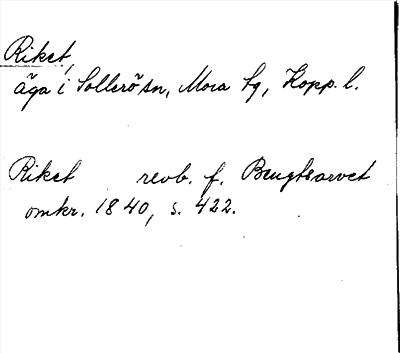 Riket,
äga i Sollerö sn, Mora tg, Kopp. l.
Riket revb. f. Bengtsarvet
omkr. 1840, s. 422.